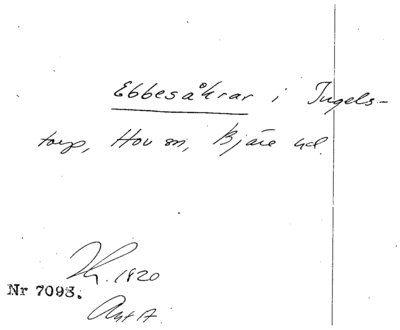 Ebbesåkrar i Ingels-
torp, Hov sn, Bjäre hd.
1920
Nr 7093.
Avt A.